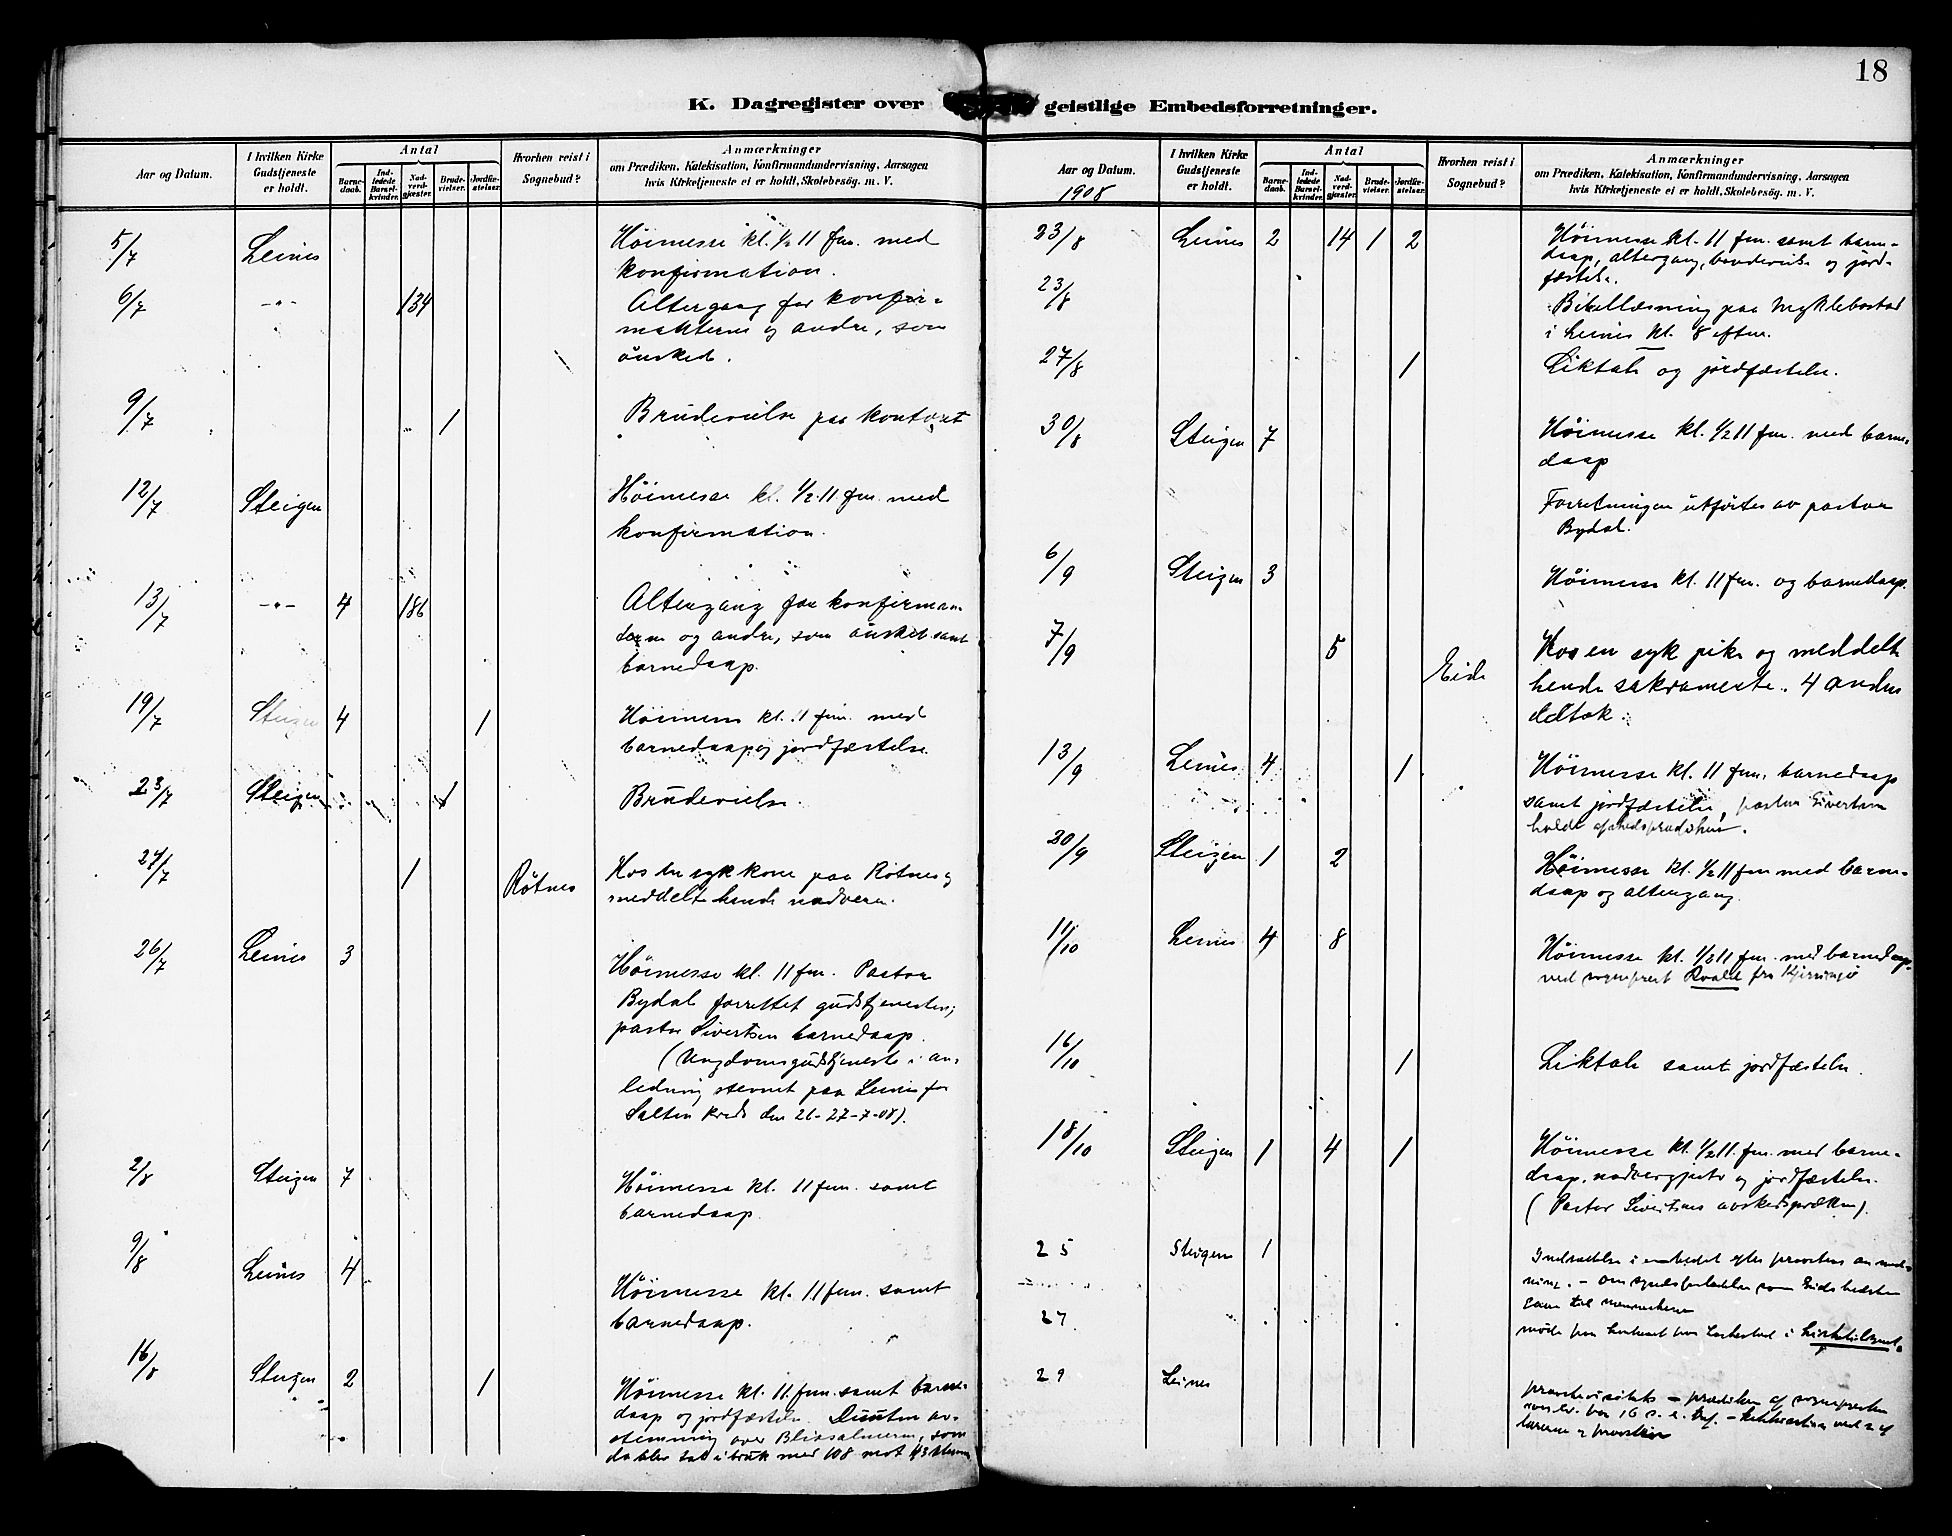 18
K. Dagregister over geistlige Embedsforretninger.
Aar og Datum.
I hvilken Kirke Gudstjeneste er holdt.
Antal
Barne-daab.
Ind-ledede Barsel-kvinder.
Nad-verd-gjæster.
Brude-vielser.
Jordfæ-stelser.
Hvorhen reist i Sognebud?
Anmærkninger
om Prædiken, Katekisation, Konfirmandundervisning, Aarsagen
hvis Kirketjeneste ei er holdt, Skolebesög. m. V.
5/7 Leines Höimesse kl. 1/2 11 fm. med
konfirmation.
6/7 -"- 134 Altergang for konfir-
manterne og andre, som
önsked.
9/7 1 Brudevielse paa kontoret
12/7 Steigen Höimesse kl. 1/2 11 fm. med
konfirmation.
13/7 -"- 4 186 Altergang for konfirman-
terne og andre, som önsket samt
barnedaap.
19/7 Steigen 4 1 Höimesse kl. 11 fm. med
barnedaap og jordfæstelse
23/7 Steigen 1 Brudevielse.
24/7 1 Rötnes Hos en syk kone paa Rötnes og
meddelt hende nadveren.
26/7 Leines 3 Höimesse kl. 11 fm. Pastor
Bydal forrettet gudstjenesten;
pastor Sivertsen barnedaap.
(Ungdomsgudstjeneste i an-
ledning stevnet paa Leines for
Salten kreds den 26-27-7-08).
2/8 Steigen 7 Höimesse kl. 11 fm. samt
barnedaap.
9/8 Leines 4 Höimesse kl. 11 fm. samt
barnedaap.
16/8 Steigen 2 1 Höimesse kl. 11. fm. samt barne-
daap og jordfæstelse. Desuten av-
stemning over Blixsalmerne, som
da blev sat i bruk med 108 mot 43 stemmer
Aar og Datum.
1908
I hvilken Kirke Gudstjeneste er holdt.
Antal
Barne-daab.
Ind-ledede Barsel-kvinder.
Nad-verd-gjæster.
Brude-vielser.
Jordfæ-stelser.
Hvorhen reist i Sognebud?
Anmærkninger
om Prædiken, Katekisation, Konfirmandundervisning, Aarsagen
hvis Kirketjeneste ei er holdt, Skolebesög. m. V.
23/8 Leines 2 14 1 2 Höimesse kl. 11 fm. samt barne-
daap, altergang, brudevielse og jord-
fæstelse.
23/8 Bibellæsning paa Myklebostad
i Leines kl. 8 eftm.
27/8 1 Liktale og jordfæstelse.
30/8 Steigen 7 Höimesse kl. 1/2 11 fm. med barne-
daap
Forretningen utförtes av pastor
Bydal.
6/9 Steigen 3 Höimesse kl. 11 fm. og barnedaap.
7/9 5 Eide Hos en syk pike og meddelt
hende sakramente. 4 andre
deltok.
13/9 Leines 4 1 Höimesse kl. 11 fm. barnedaap
samt jordfæstelse, pastor Sivertsen
holdt afskedsprædiken.
20/9 Steigen 1 2 Höimesse kl. 1/2 11 fm med barne-
daap og altergang.
11/10 Leines 4 8 Höimesse kl. 1/2 11 fm. med barnedaap.
ved sogneprest Roald fra Kjerringö
16/10 1 Liktale samt jordfæstelse.
18/10 Steigen 1 4 1 Höimesse kl. 1/2 11. fm. med barne-
daap, nadvergjester og jordfæstelse.
(Pastor Sivertsens avskedspræken).
25 Steigen 1 Indsættelse i embedet efter provstens anmod-
ning. - om som Guds bedste
gave til menneskene
27 möde paa i
29 Leines provstevisitats - prædiken af sognepresten
over
lærerne og provsten